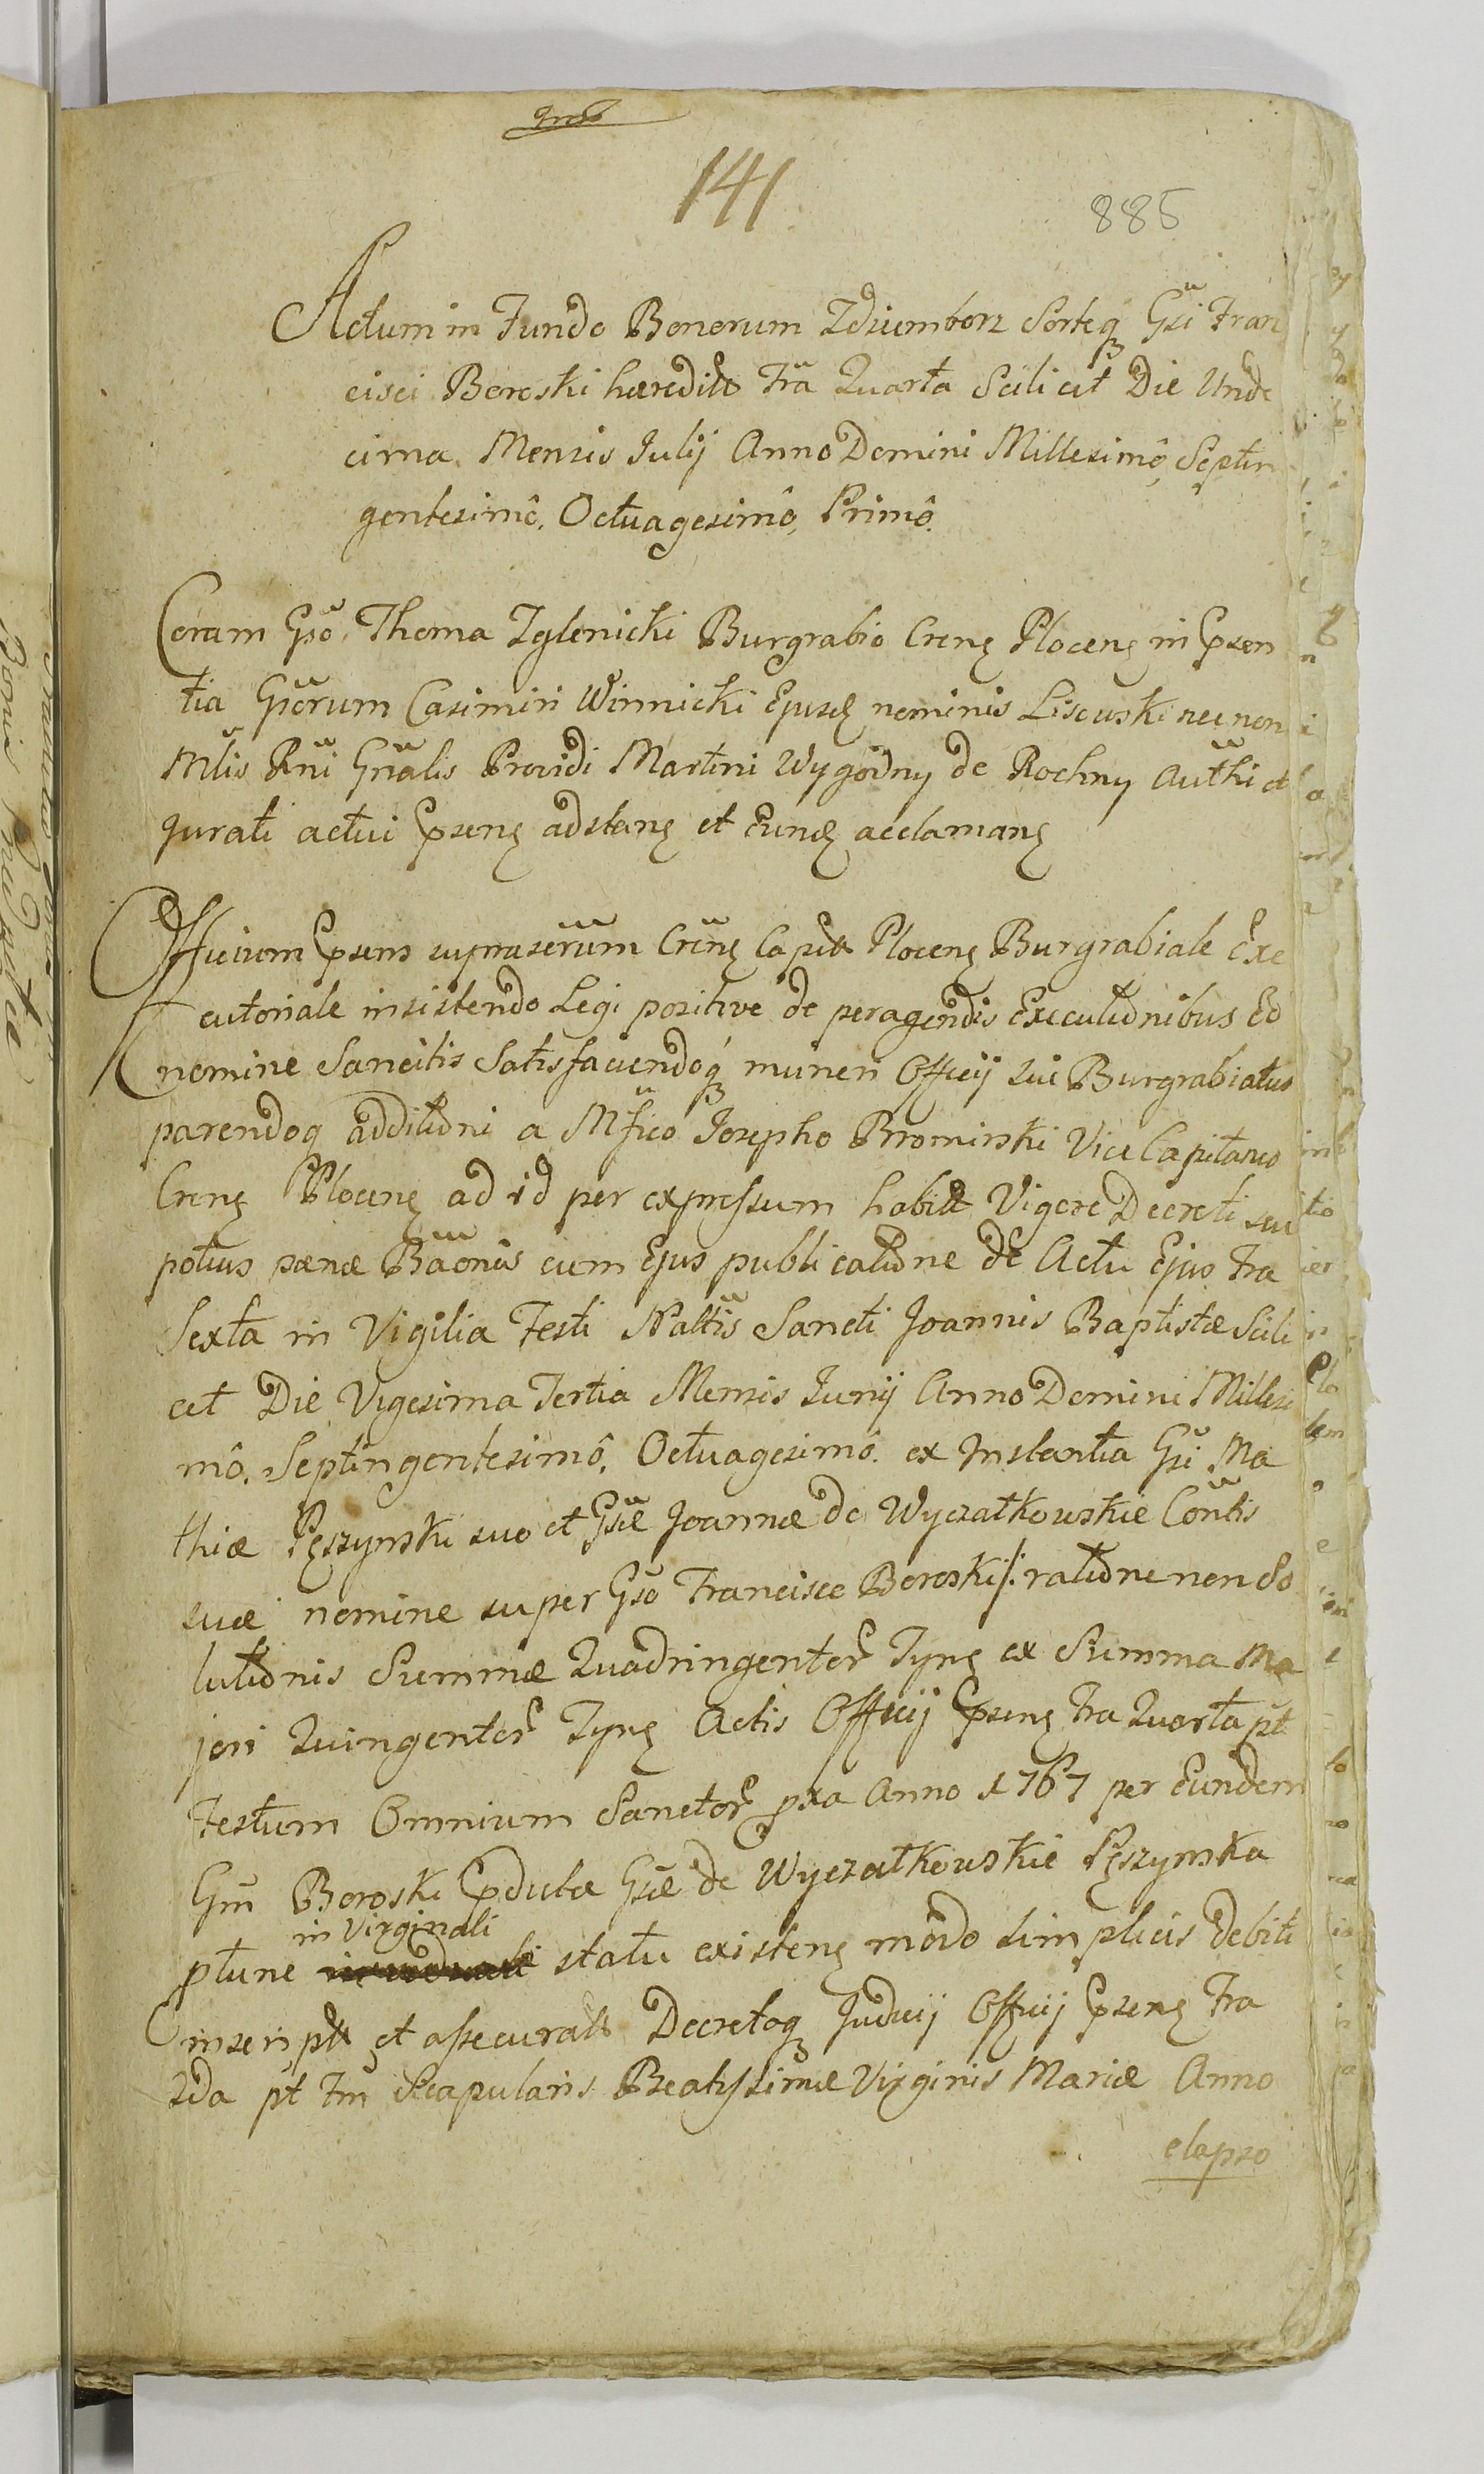 141
885
Actum in Fundo Bonorum Zdziemborz Sorteq Gsi Fran
cisci Boroski haeredit Fra Quarta Scilicet Die Unde
cima Mensis Julij Anno Domini Millesimô, Septin
gentesimô, Octuagesimô, Primô.
Coram Gso Thoma Zglenicki Burgrabio Crens Plocens in Prsen
tia Gsorum Casimiri Winnicki Ejusd nominis Liscuski nec non
Mlis Rni Gnalis Providi Martini Wygodny de Rochny Authi et
Jurati actui Prsens adstans et Eund acclamans
Officium Prsens suprascrum Crens Capitt Plocens Burgrabiale Exe
cutoriale insistendo Legi positive de peragendis Executionibus Eo
nomine Sancitis Satisfaciendoq muneri Officij sui Burgrabiatus
parendoq additioni a Mfico Josepho Bromirski Vice Capitaneo
Crens Plocens ad id per expressum habitt Vigore Decreti seu
potius paenae Banonis cum Ejus publicatione de Actu Ejus Fra
Sexta in Vigilia Festi Naltis Sancti Joannis Baptistae Scili
cet Die Vigesima Tertia Mensis Junij Anno Domini Millesi
mô, Septingentesimô, Octuagesimô. ex Instantia Gsi Ma
thiae Pęszynski suo et Gsae Joannae de Wyczatkowskie Contis
suae nomine super Gso Francisco Boroski /: ratione non So
lutionis Summae Quadringentor Tyns ex Summa Ma
jori Quingentor Tyns Actis Officij Prsens Fra Quarta pt
Festum Omnium Sanctor pxa Anno 1767 per Eundem
Gm Boroski Pdictae Gsae de Wyczatkowskie Pęszynska
in Virginali
ptunc statu existens modo simplicis Debiti
inscriptt et assecuratt Decretoq Judicij Officij Prsens Fra
2da pt Fm Scapularis Beatissimae Virginis Mariae Anno
elapso